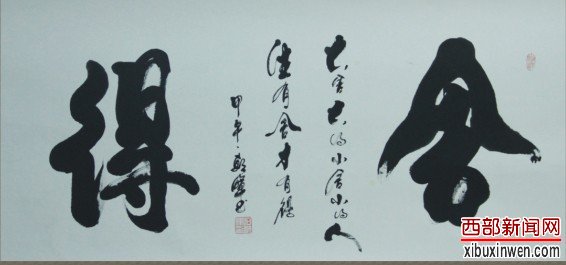 舍
大舍大得小舍小得人
生有舍才有得
甲午
得
西部新闻网
xibuxinwen.com